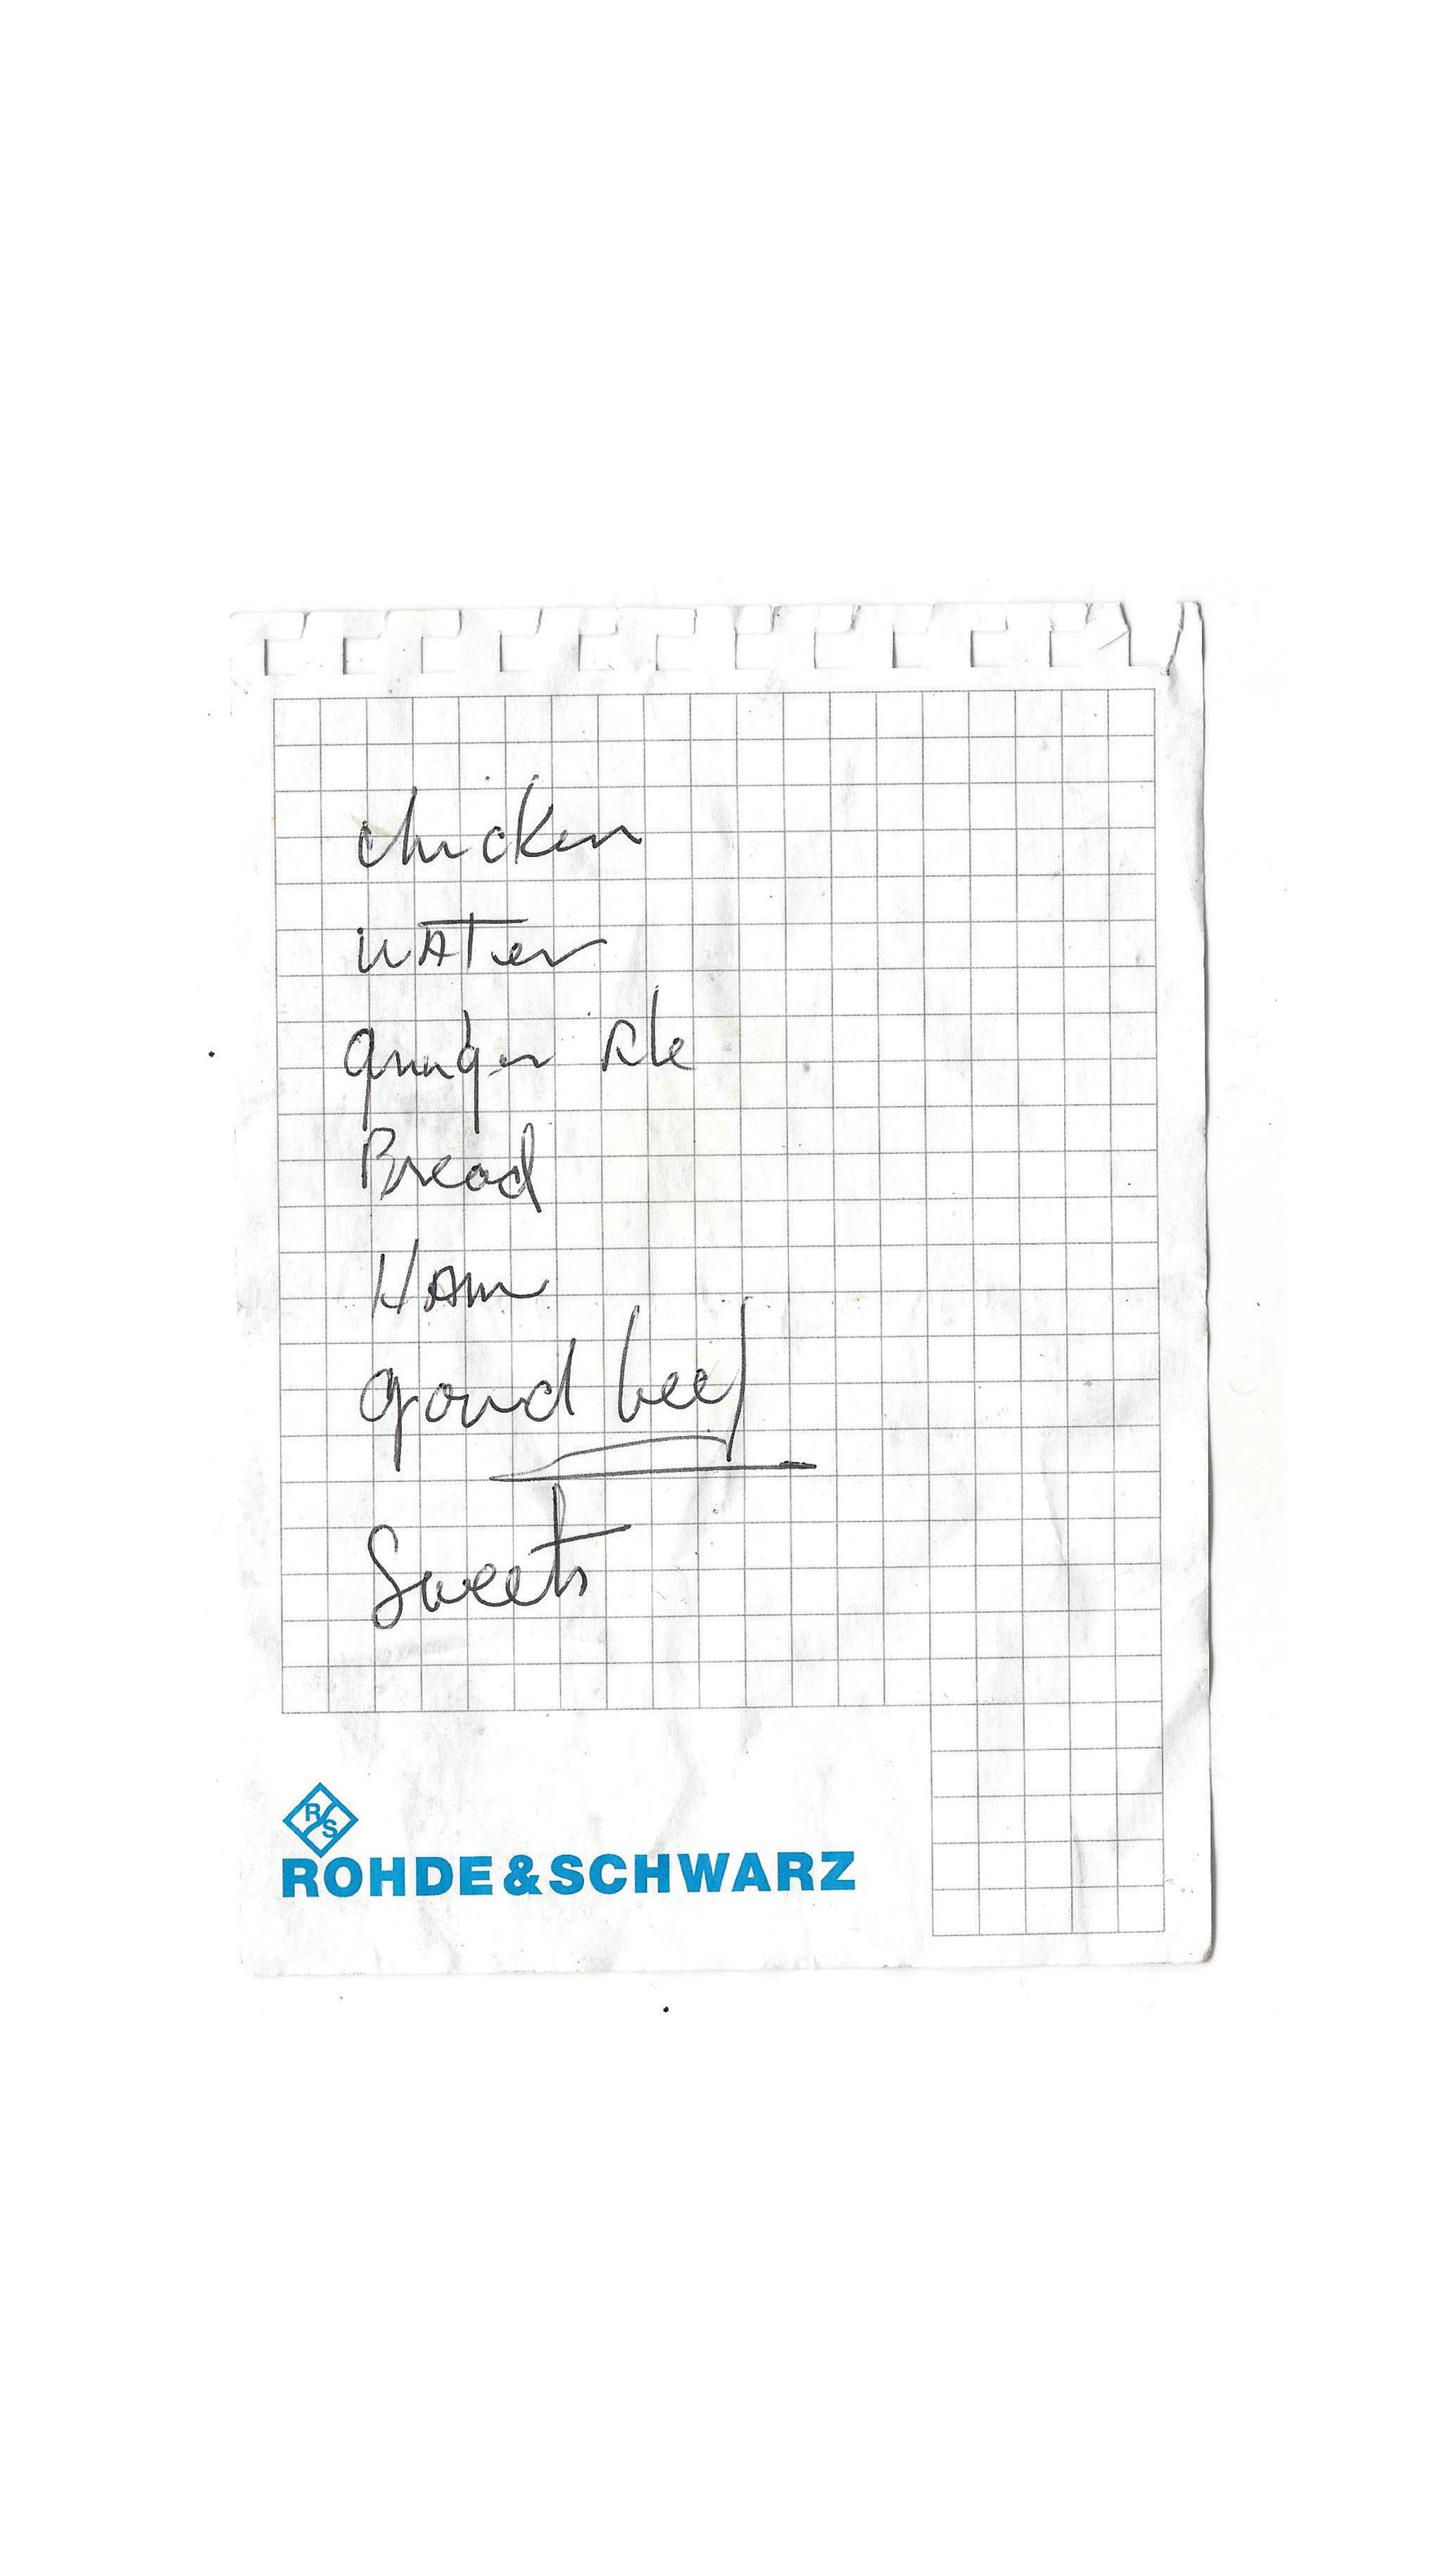 chicken
water
ginger ale
Bread
Ham
ground beef
Sweets
R&S
ROHDE&SCHWARZ